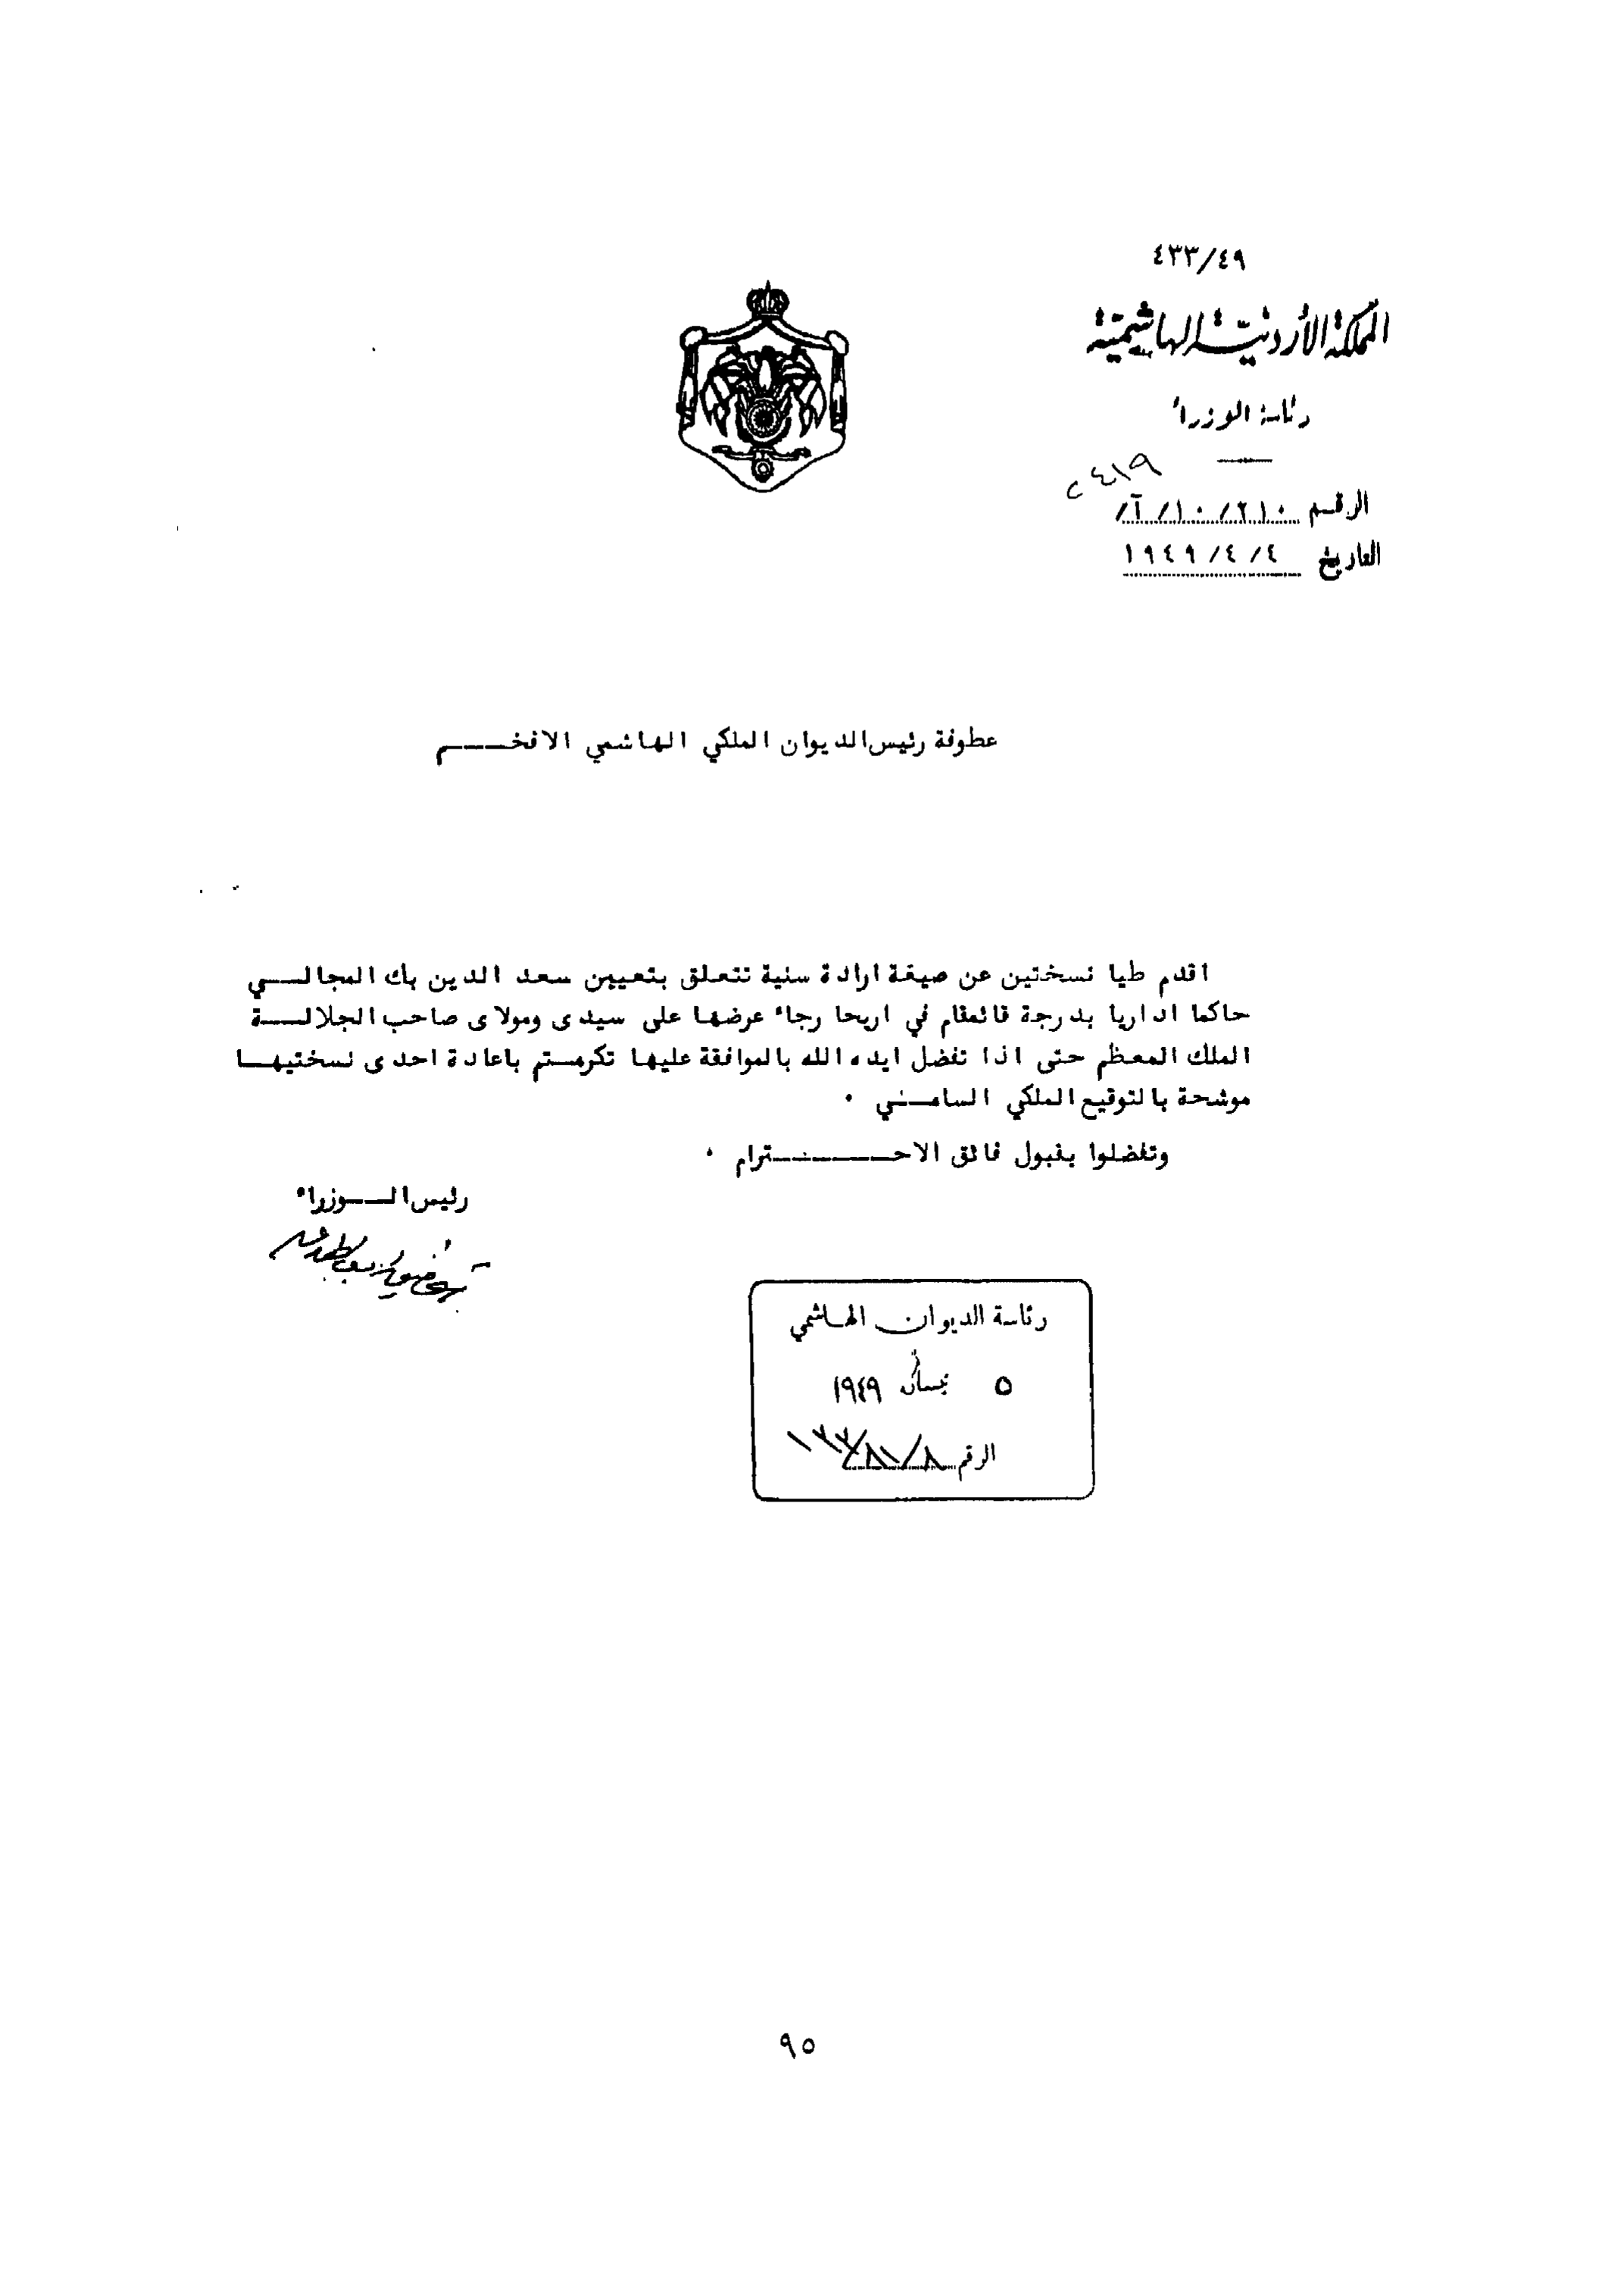 ٤٣٣/٤٩
المملكة الأردنية الهاشمية
رئاسة الوزراء
٢٤١٩
الرقم ٢١٠/١٠/آ/
التاريخ ١٩٤٩/٤/٤
عطوفة رئيس الديوان الملكي الهاشمي الافخـــــم
اقدم طيا نسختين عن صيغة ارادة سنية تتعلق بتعيين سعد الدين بك المجالـــي
حاكما اداريا بدرجة قائمقام في اريحا رجاء عرضها على سيدى ومولاى صاحب الجلالــــة
الملك المعظم حتى اذا تفضل ايده الله بالموافقة عليها تكرمـتم باعادة احدى نسختيهـــا
موشحة بالتوقيع الملكي السامــي ٠
وتفضلوا بقبول فائق الاحــــــــترام ٠
رئيس الـــوزراء
رئاسة الديوان الهاشمي
٥ نيسان ١٩٤٩
الرقم
٩٥